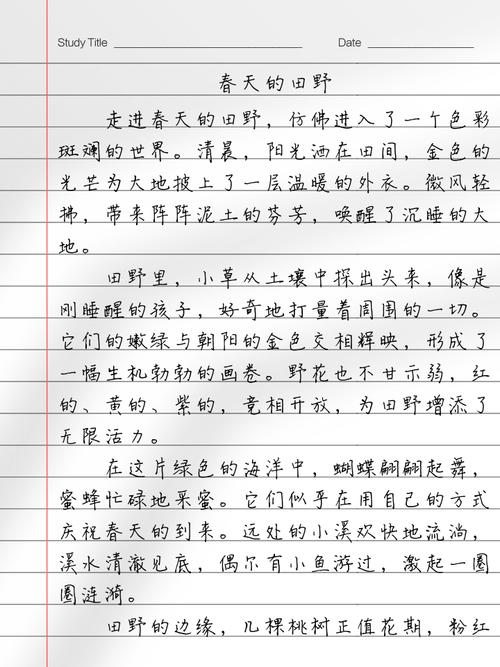 Study Title Date
春天的田野
走进春天的田野，仿佛进入了一个色彩
斑斓的世界。清晨，阳光洒在田间，金色的
光芒为大地披上了一层温暖的外衣。微风轻
拂，带来阵阵泥土的芬芳，唤醒了沉睡的大
地。
田野里，小草从土壤中探出头来，像是
刚睡醒的孩子，好奇地打量着周围的一切。
它们的嫩绿与朝阳的金色交相辉映，形成了
一幅生机勃勃的画卷。野花也不甘示弱，红
的、黄的、紫的，竞相开放，为田野增添了
无限活力。
在这片绿色的海洋中，蝴蝶翩翩起舞，
蜜蜂忙碌地采蜜。它们似乎在用自己的方式
庆祝春天的到来。远处的小溪欢快地流淌，
溪水清澈见底，偶尔有小鱼游过，激起一圈
圈涟漪。
田野的边缘，几棵桃树正值花期，粉红